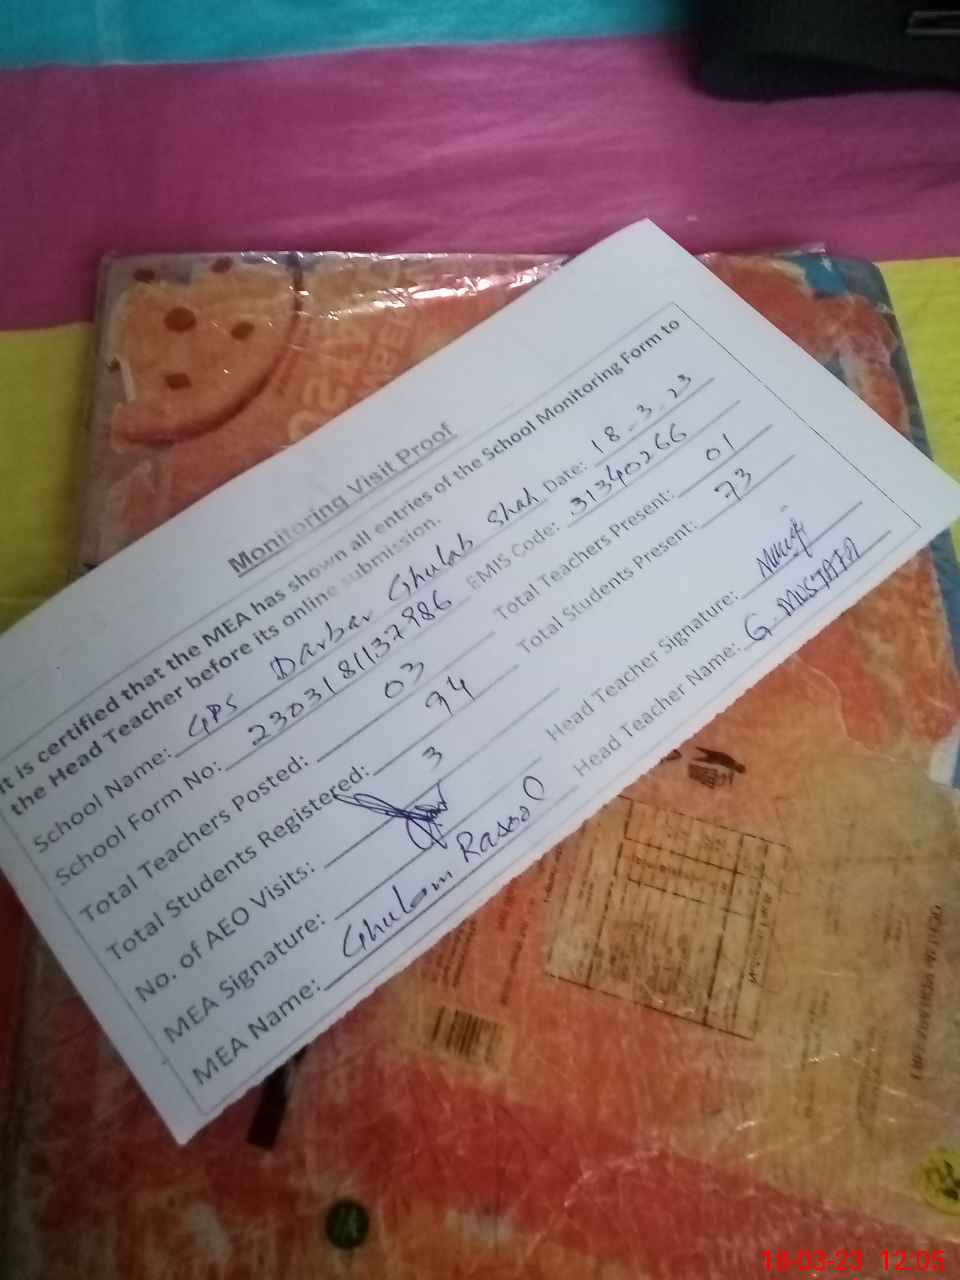 Monitoring Visit Proof
It is certified that the MEA has shown all entries of the School Monitoring Form to
the Head Teacher before its online submission.
School Name: GPS Darbar Ghulab Shah Date: 18-3-23
School Form No: 2303181137986 EMIS Code: 31340266
Total Teachers Posted: 03 Total Teachers Present: 01
Total Students Registered: 94 Total Students Present: 73
No. of AEO Visits: 3
MEA Signature: Head Teacher Signature:
MEA Name: Ghulam Rasool Head Teacher Name: G. MUSTAFA
18-03-23 12:05